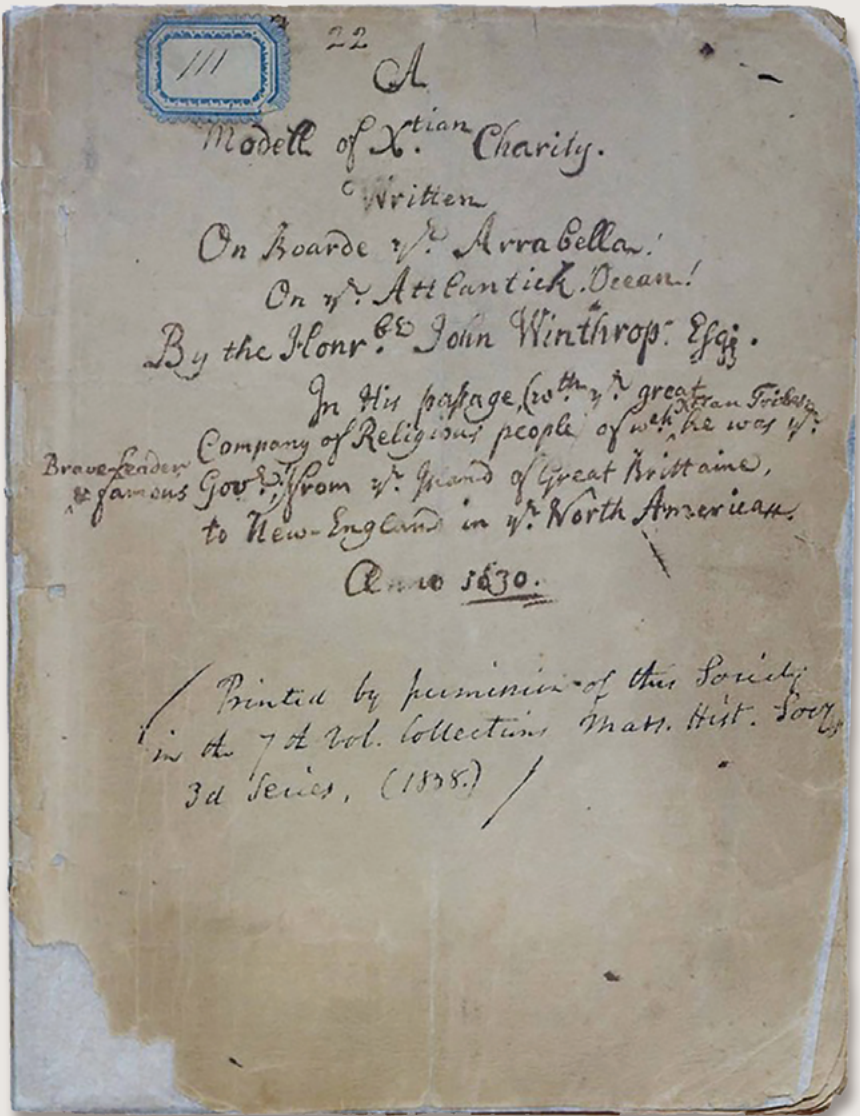 111
22
A
Modell of X.tian Charity.
Written
On Boarde ye. Arrabella!
On ye. Attlantick. Ocean!
By the Honr.ble John Winthrop. Esqr.
In His passage, (wth ye. great
Company of Religious people, of wch Xtian Tribes he was ye.
Brave Leader & famous Govr.;) from ye. Island of Great Brittaine,
to New-England in ye. North America.
Anno 1630.
(Printed by permission of this Society
in the 7th Vol. Collections Mass. Hist. Socy,
3d Series, (1838.) )